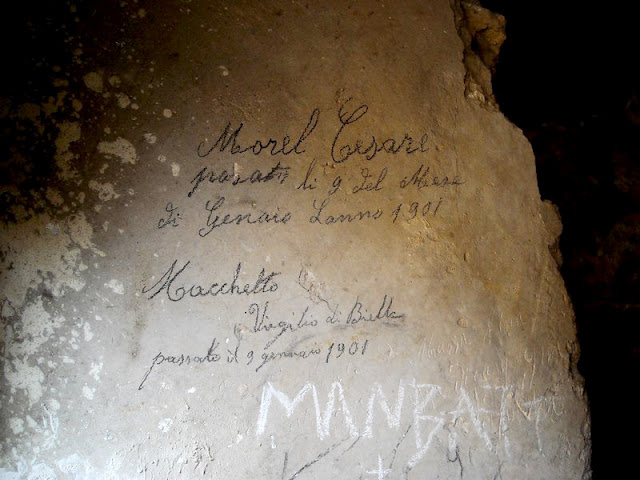 Morel Cesare
pasato li 9 del Mese
di Genaio Lanno 1901
Macchetto
Virgilio di Biella
passato il 9 gennaio 1901
MANBATT